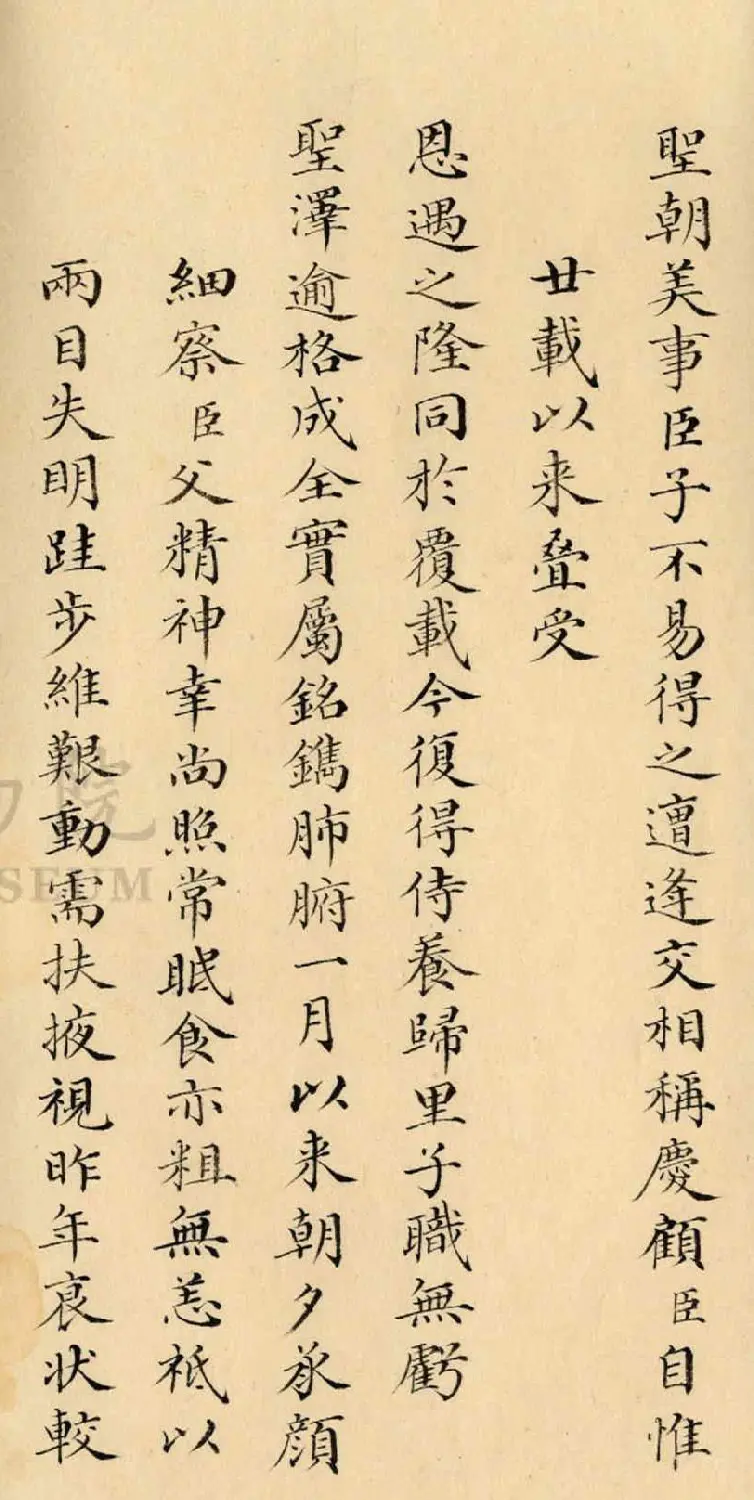 聖朝美事臣子不易得之遭逢交相稱慶顧臣自惟
廿載以来疊受
恩遇之隆同於覆載今復得侍養歸里子職無虧
聖澤逾格成全實屬銘鐫肺腑一月以来朝夕承顔
細察臣父精神幸尚照常眠食亦粗無恙祗以
兩目失明跬步維艱動需扶掖視昨年衰状較
院
SEUM